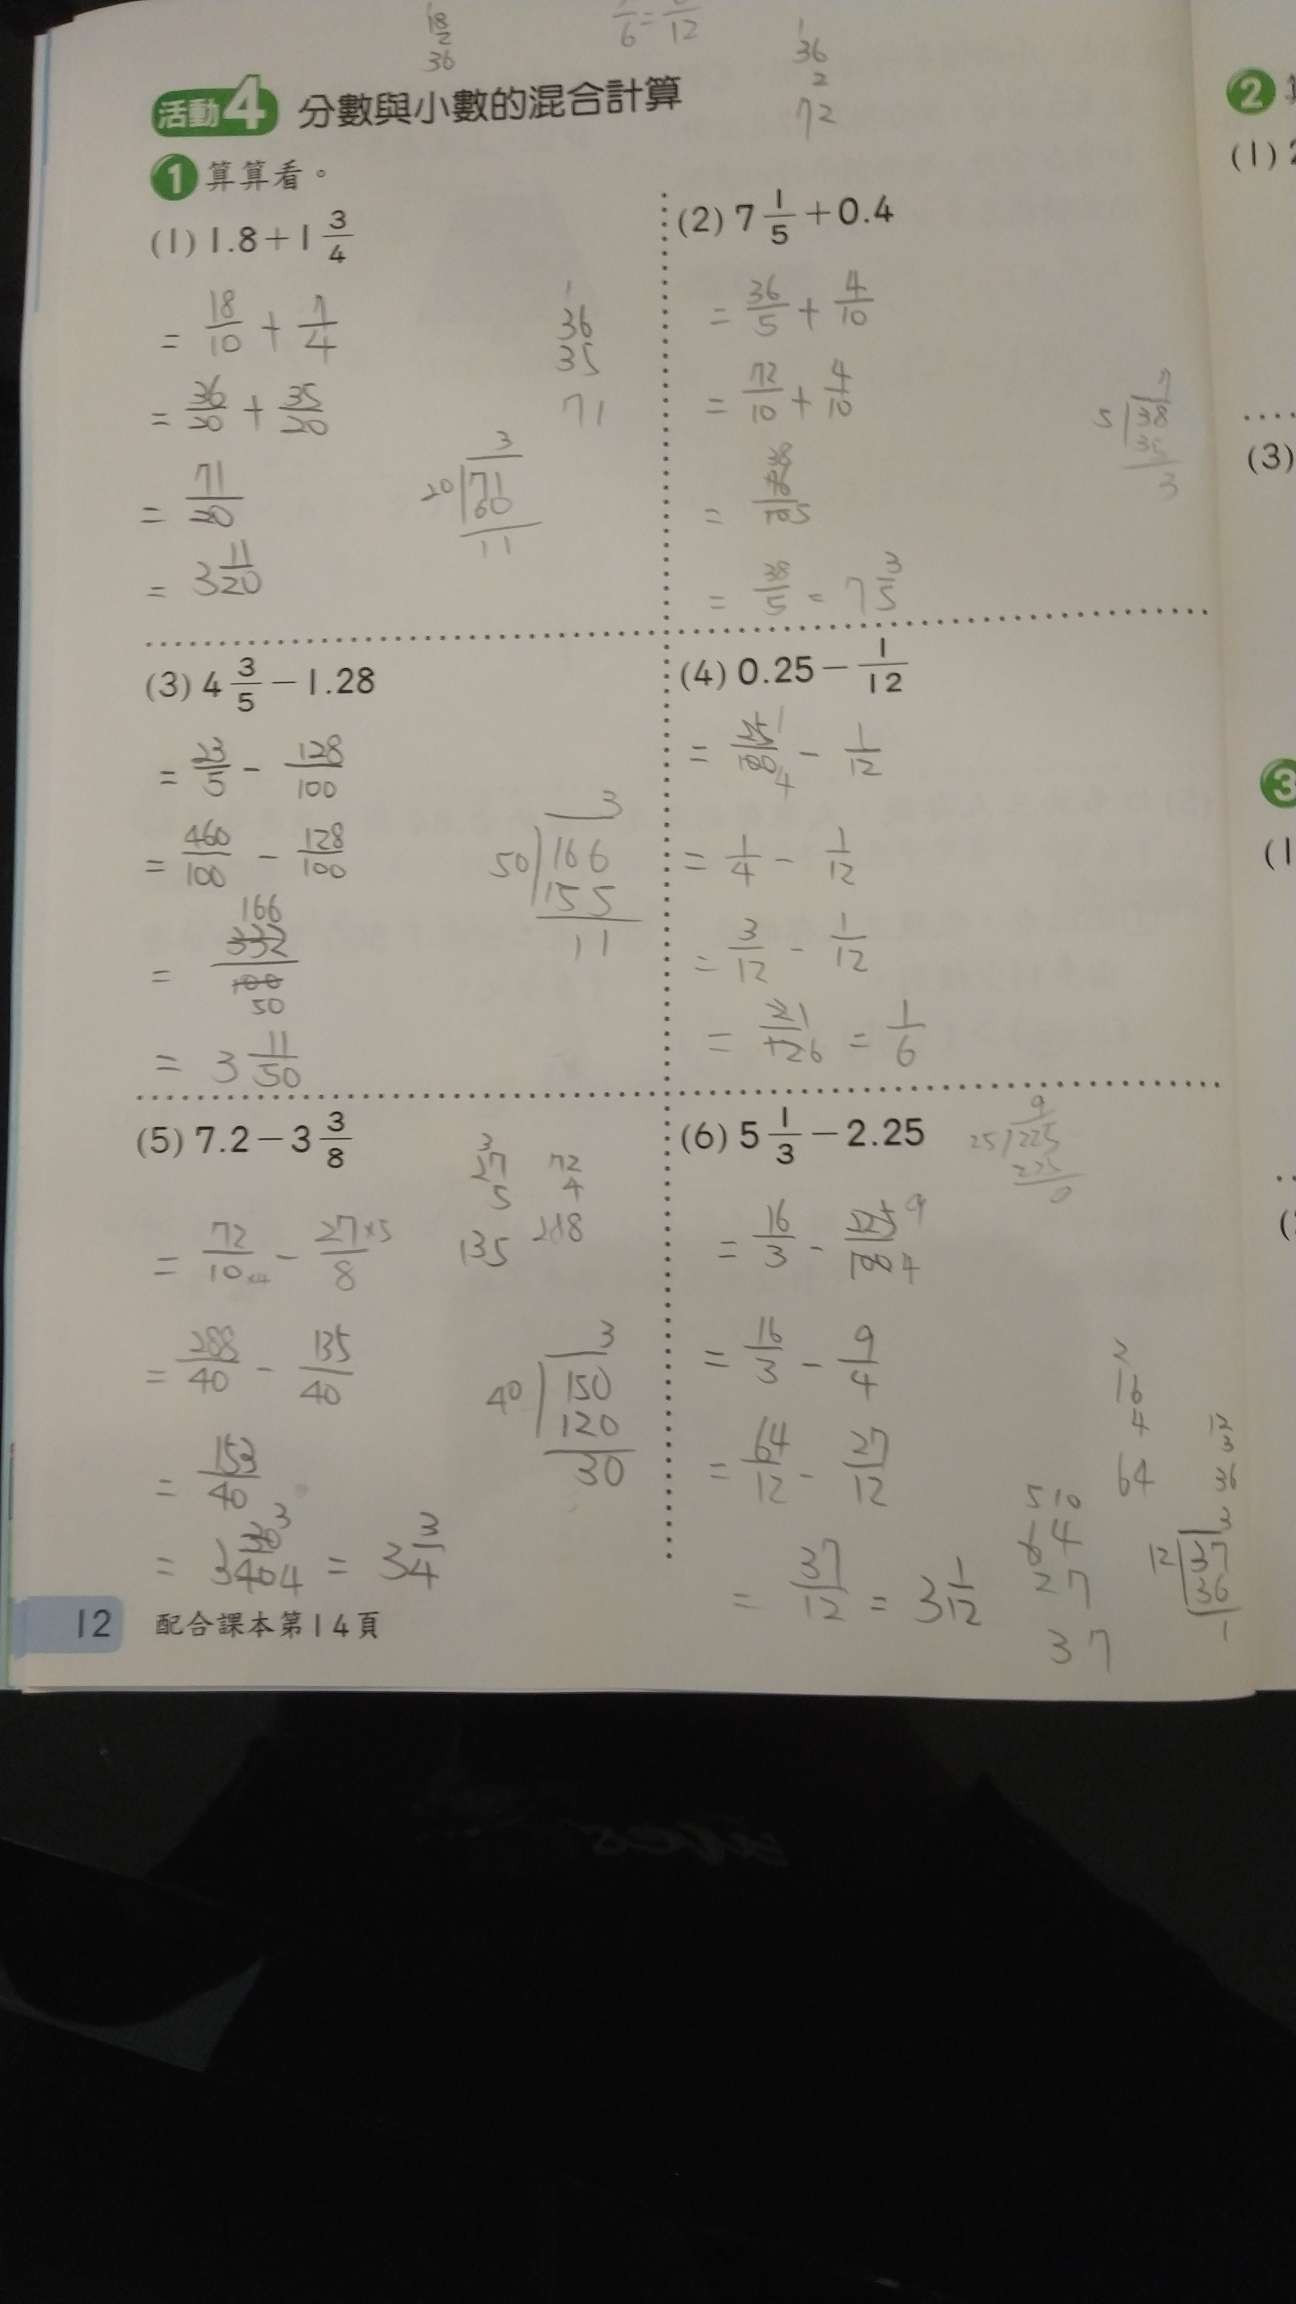 18
2
36
6 = 12
1
36
2
72
活動4 分數與小數的混合計算
1 算算看。
(1) 1.8 + 1 3/4
= 18/10 + 7/4
= 36/20 + 35/20
= 71/20
= 3 11/20
1
36
35
71
3
20 71
60
11
(2) 7 1/5 + 0.4
= 36/5 + 4/10
= 72/10 + 4/10
38
= 10 5
= 38/5 = 7 3/5
7
5 38
35
3
(3) 4 3/5 - 1.28
= 23/5 - 128/100
= 460/100 - 128/100
166
= 332/100
50
= 3 11/50
3
50 166
155
11
(4) 0.25 - 1/12
= 25/100 1/4 - 1/12
= 1/4 - 1/12
= 3/12 - 1/12
= 2/12 1/6 = 1/6
(5) 7.2 - 3 3/8
= 72/10 ×4 - 27/8 ×5
= 288/40 - 135/40
= 153/40
= 3 30/40 3/4 = 3 3/4
3
27
5
135
72
4
288
3
40 150
120
30
(6) 5 1/3 - 2.25
= 16/3 - 225/100 9/4
= 16/3 - 9/4
= 64/12 - 27/12
= 37/12 = 3 1/12
9
25 225
225
0
2
16
4
64
12
3
36
5 10
64
27
37
3
12 37
36
1
12 配合課本第14頁
2
(1) 2
(3)
3
(1